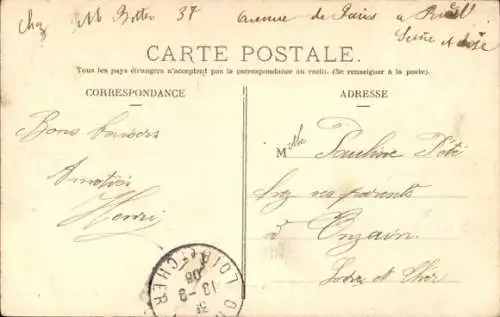 chez M Botter 37 avenue de Paris a Rueil
Seine et Oise
CARTE POSTALE.
Tous les pays étrangers n'acceptent pas la correspondance au recto. (Se renseigner à la poste).
CORRESPONDANCE
ADRESSE
Bons baisers
Amitiés
Henri
Mlle Pauline
chez ses parents
à Onzain
Loir et Cher
LOIR-ET-CHER
13-9
05